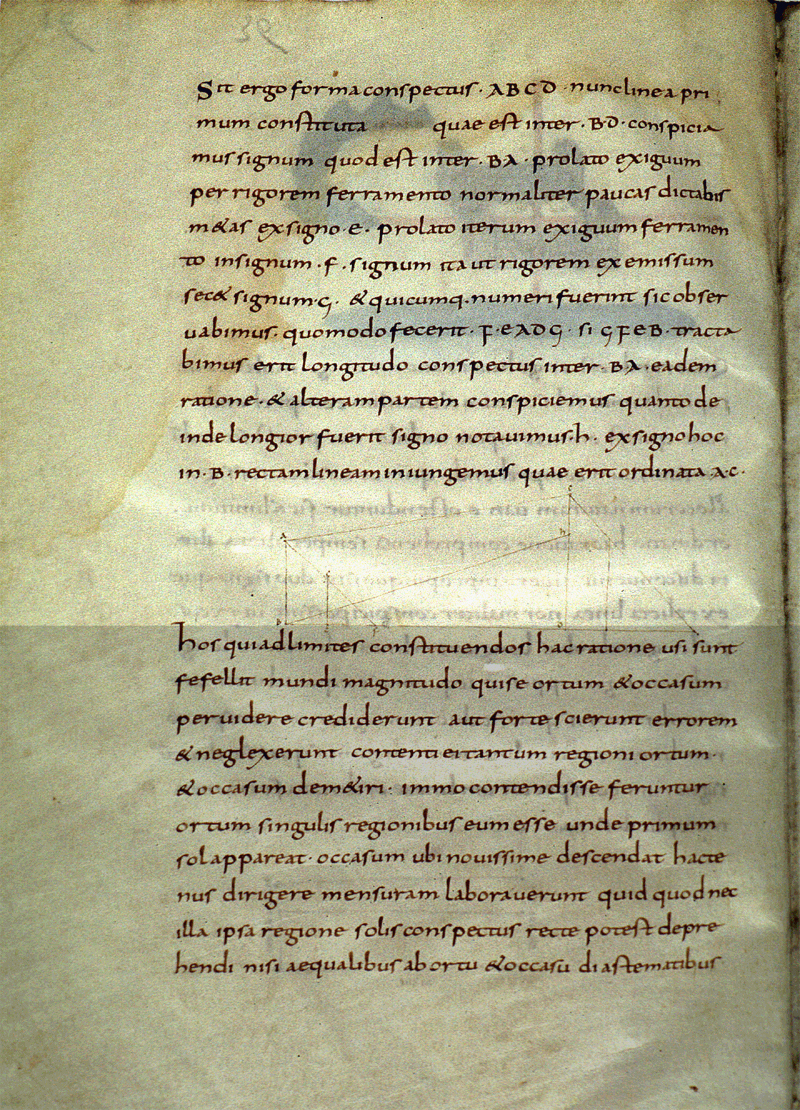 Sit ergo forma conspectus · ABCD · nunc linea pri
mum constituta quae est inter · BD · conspicia
mus signum quod est inter · BA · prolato exiguum
per rigorem ferramento normaliter paucas dictabis
m&as ex signo · e · prolato iterum exiguum ferramen
to in signum · f · signum ita ut rigorem ex emissum
sec& signum · G · & quicumq. numeri fuerint sic obser
uabimus · quomodo fecerit · F · EADG · si GFEB · tracta
bimus erit longitudo conspectus inter · BA · eadem
ratione · & alteram partem conspiciemus quanto de
inde longior fuerit signo notauimus · h · ex signo hoc
in · B · rectam lineam iniungemus quae erit ordinata · A·C ·
A
C
h
hos quia dlimites constituendos hac ratione usi sunt
fefellit mundi magnitudo qui se ortum & occasum
peruidere crediderunt aut forte scierunt errorem
& neglexerunt contenti ei tantum regioni ortum ·
& occasum dem&iri · immo contendisse feruntur
ortum singulis regionibus eum esse unde primum
sol appareat · occasum ubi nouissime descendat hacte
nus dirigere mensuram laborauerunt quid quod nec
illa ipsa regione solis conspectus recte potest depre
hendi nisi aequalibus ab ortu & occasu diastematibus